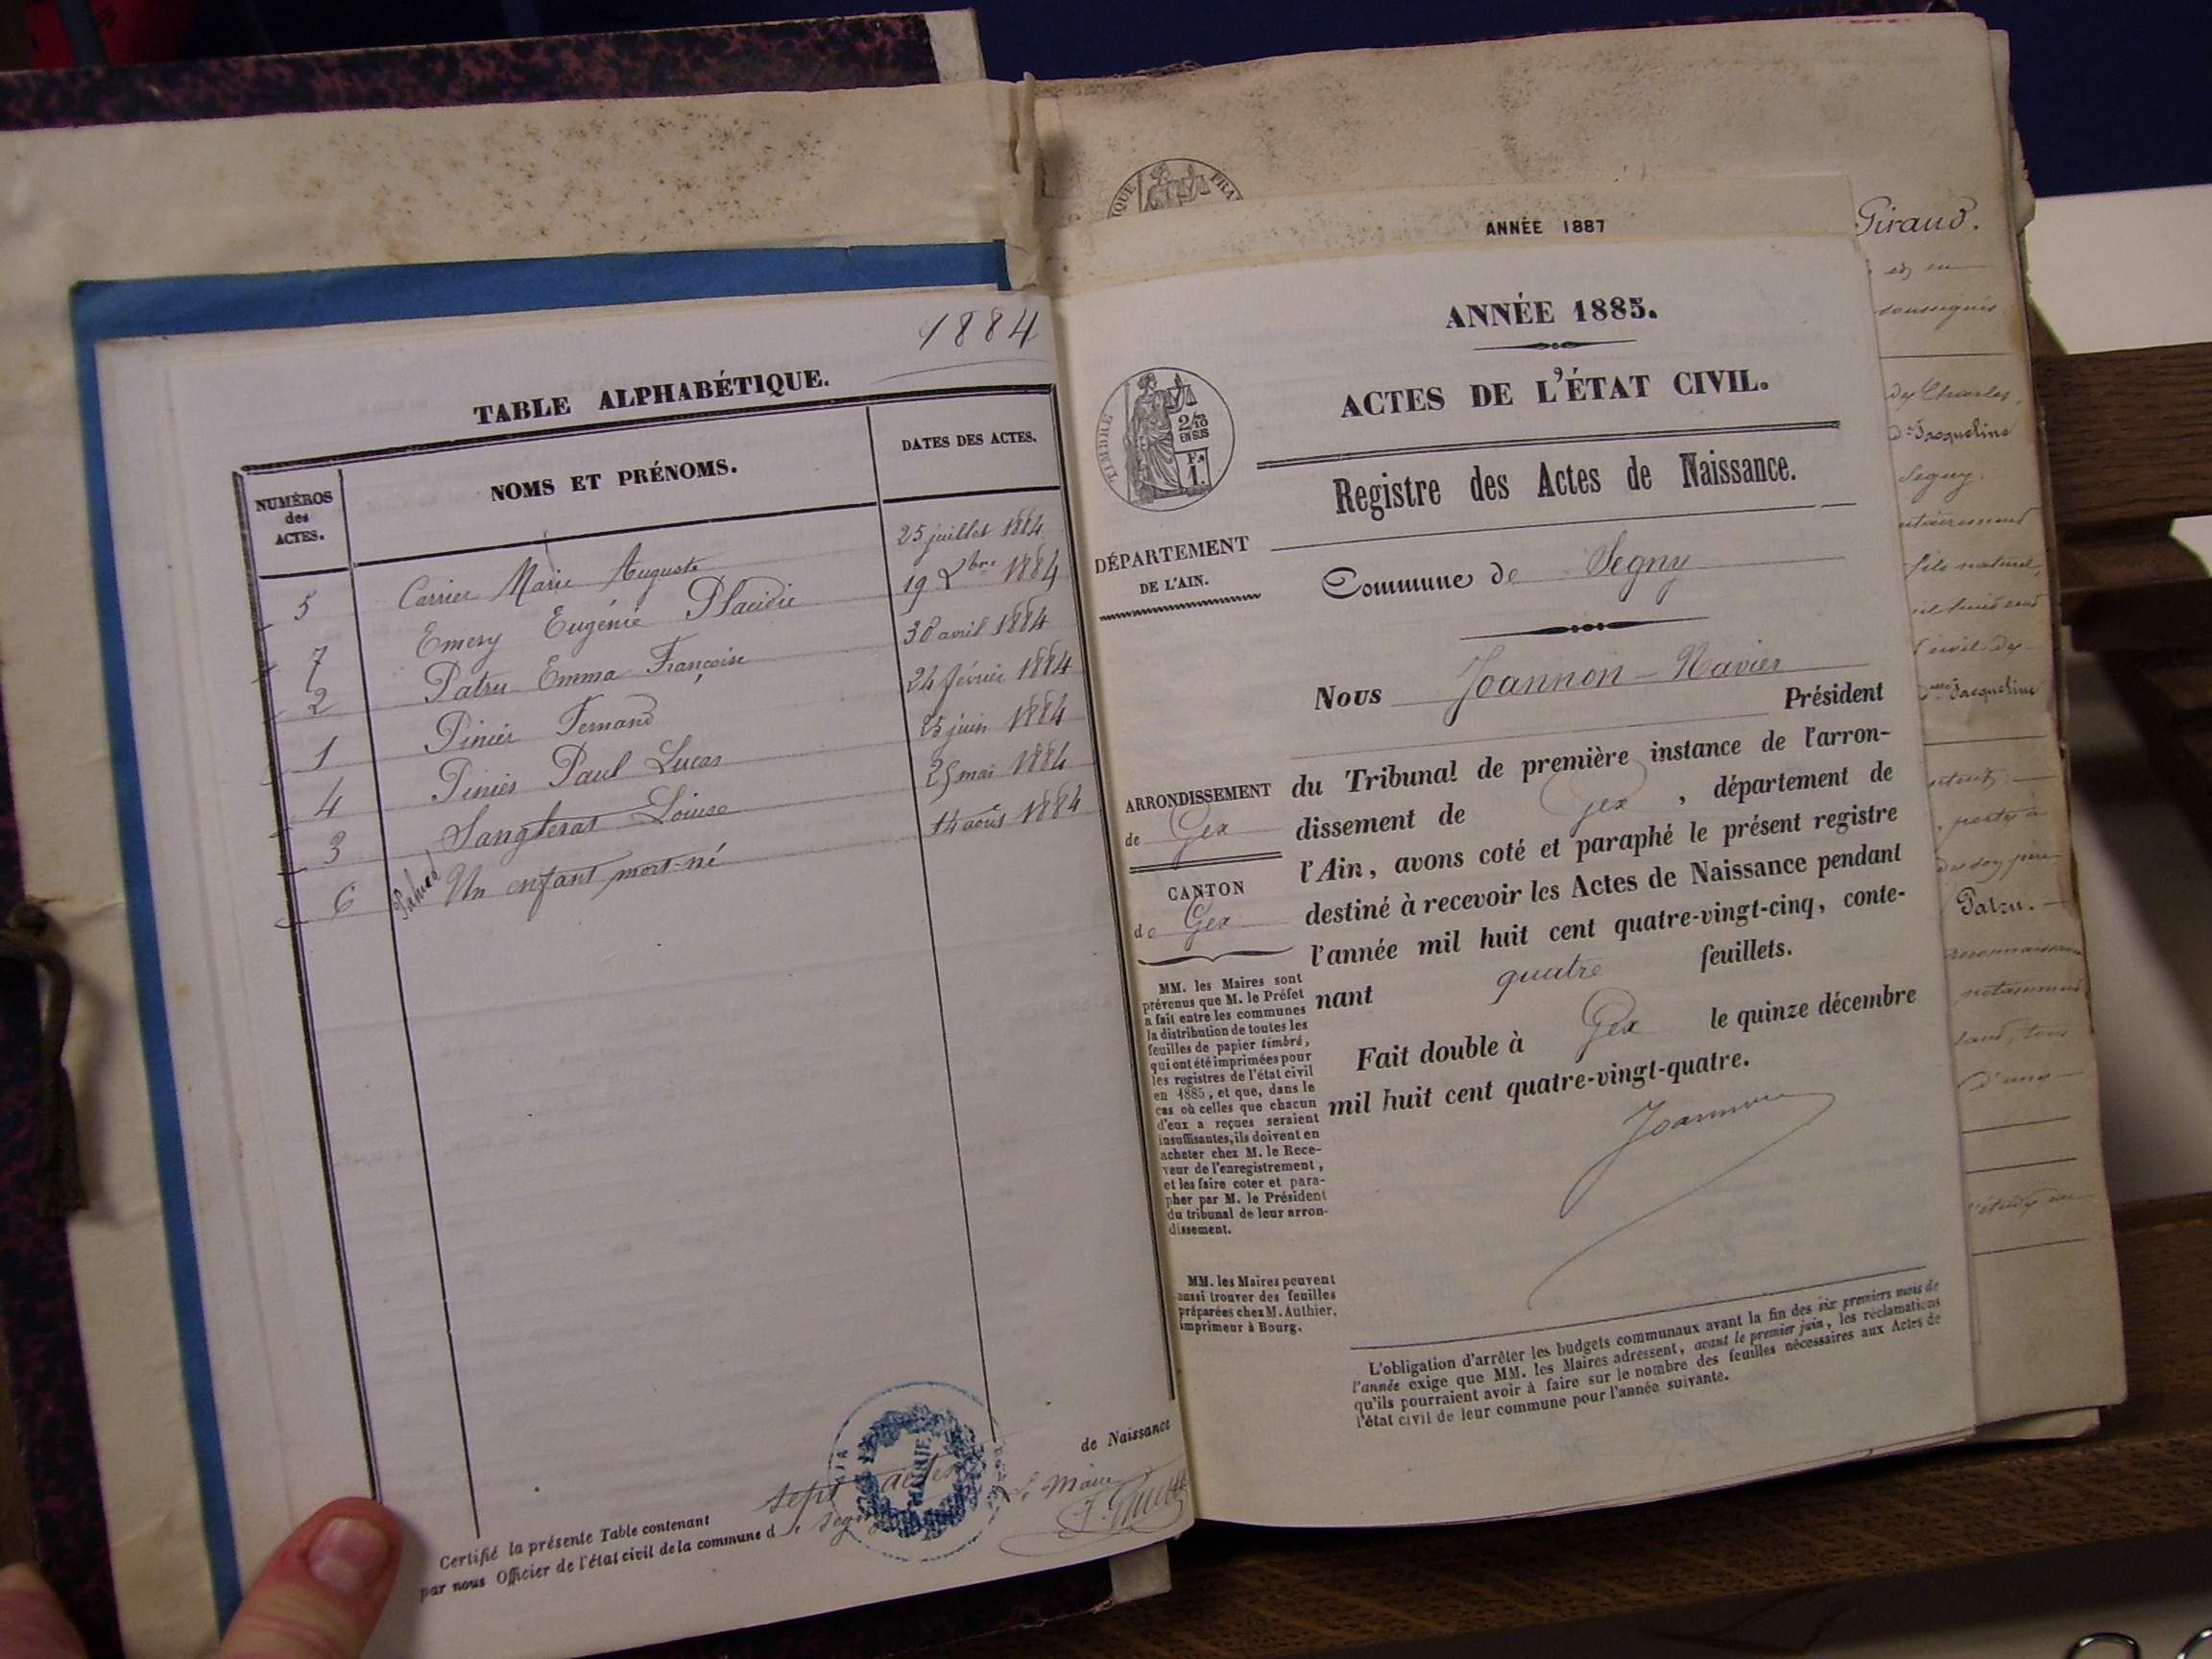 1884
TABLE ALPHABÉTIQUE.
NUMÉROS des ACTES.
NOMS ET PRÉNOMS.
DATES DES ACTES.
5 Carrier Marie Auguste 25 juillet 1884
7 Emery Eugénie Placidie 19 Xbre 1884
2 Patru Emma Françoise 30 avril 1884
1 Pinier Fernand 24 février 1884
4 Pinier Paul Lucas 25 juin 1884
3 Louise 25 mai 1884
6 Un enfant mort-né 14 août 1884
Certifié la présente Table contenant sept actes de Naissance
par nous Officier de l'état civil de la commune de Segny
Le Maire
MAIRIE
ANNÉE 1887
ANNÉE 1885.
ACTES DE L'ÉTAT CIVIL.
TIMBRE
2/10
EN SUS
1.
Registre des Actes de Naissance.
DÉPARTEMENT
DE L'AIN.
Commune de Segny
Nous Joannon-Navier
Président
du Tribunal de première instance de l'arron-
dissement de Gex, département de
l'Ain, avons coté et paraphé le présent registre
destiné à recevoir les Actes de Naissance pendant
l'année mil huit cent quatre-vingt-cinq, conte-
nant quatre feuillets.
Fait double à Gex le quinze décembre
mil huit cent quatre-vingt-quatre.
Joannon
ARRONDISSEMENT
de Gex
CANTON
de Gex
MM. les Maires sont
prévenus que M. le Préfet
a fait entre les communes
la distribution de toutes les
feuilles de papier timbré,
qui ont été imprimées pour
les registres de l'état civil
en 1885, et que, dans le
cas où celles que chacun
d'eux a reçues seraient
insuffisantes, ils doivent en
acheter chez M. le Rece-
veur de l'enregistrement,
et les faire coter et para-
pher par M. le Président
du tribunal de leur arron-
dissement.
MM. les Maires peuvent
aussi trouver des feuilles
préparées chez M. Authier,
imprimeur à Bourg.
L'obligation d'arrêter les budgets communaux avant la fin des six premiers mois de
l'année exige que MM. les Maires adressent, avant le premier juin, les réclamations
qu'ils pourraient avoir à faire sur le nombre des feuilles nécessaires aux Actes de
l'état civil de leur commune pour l'année suivante.
Giraud.
soussignés
de Charles,
Jacqueline
Segny.
fils naturel,
civil de
Jacqueline
Patru.
notamment
d'une